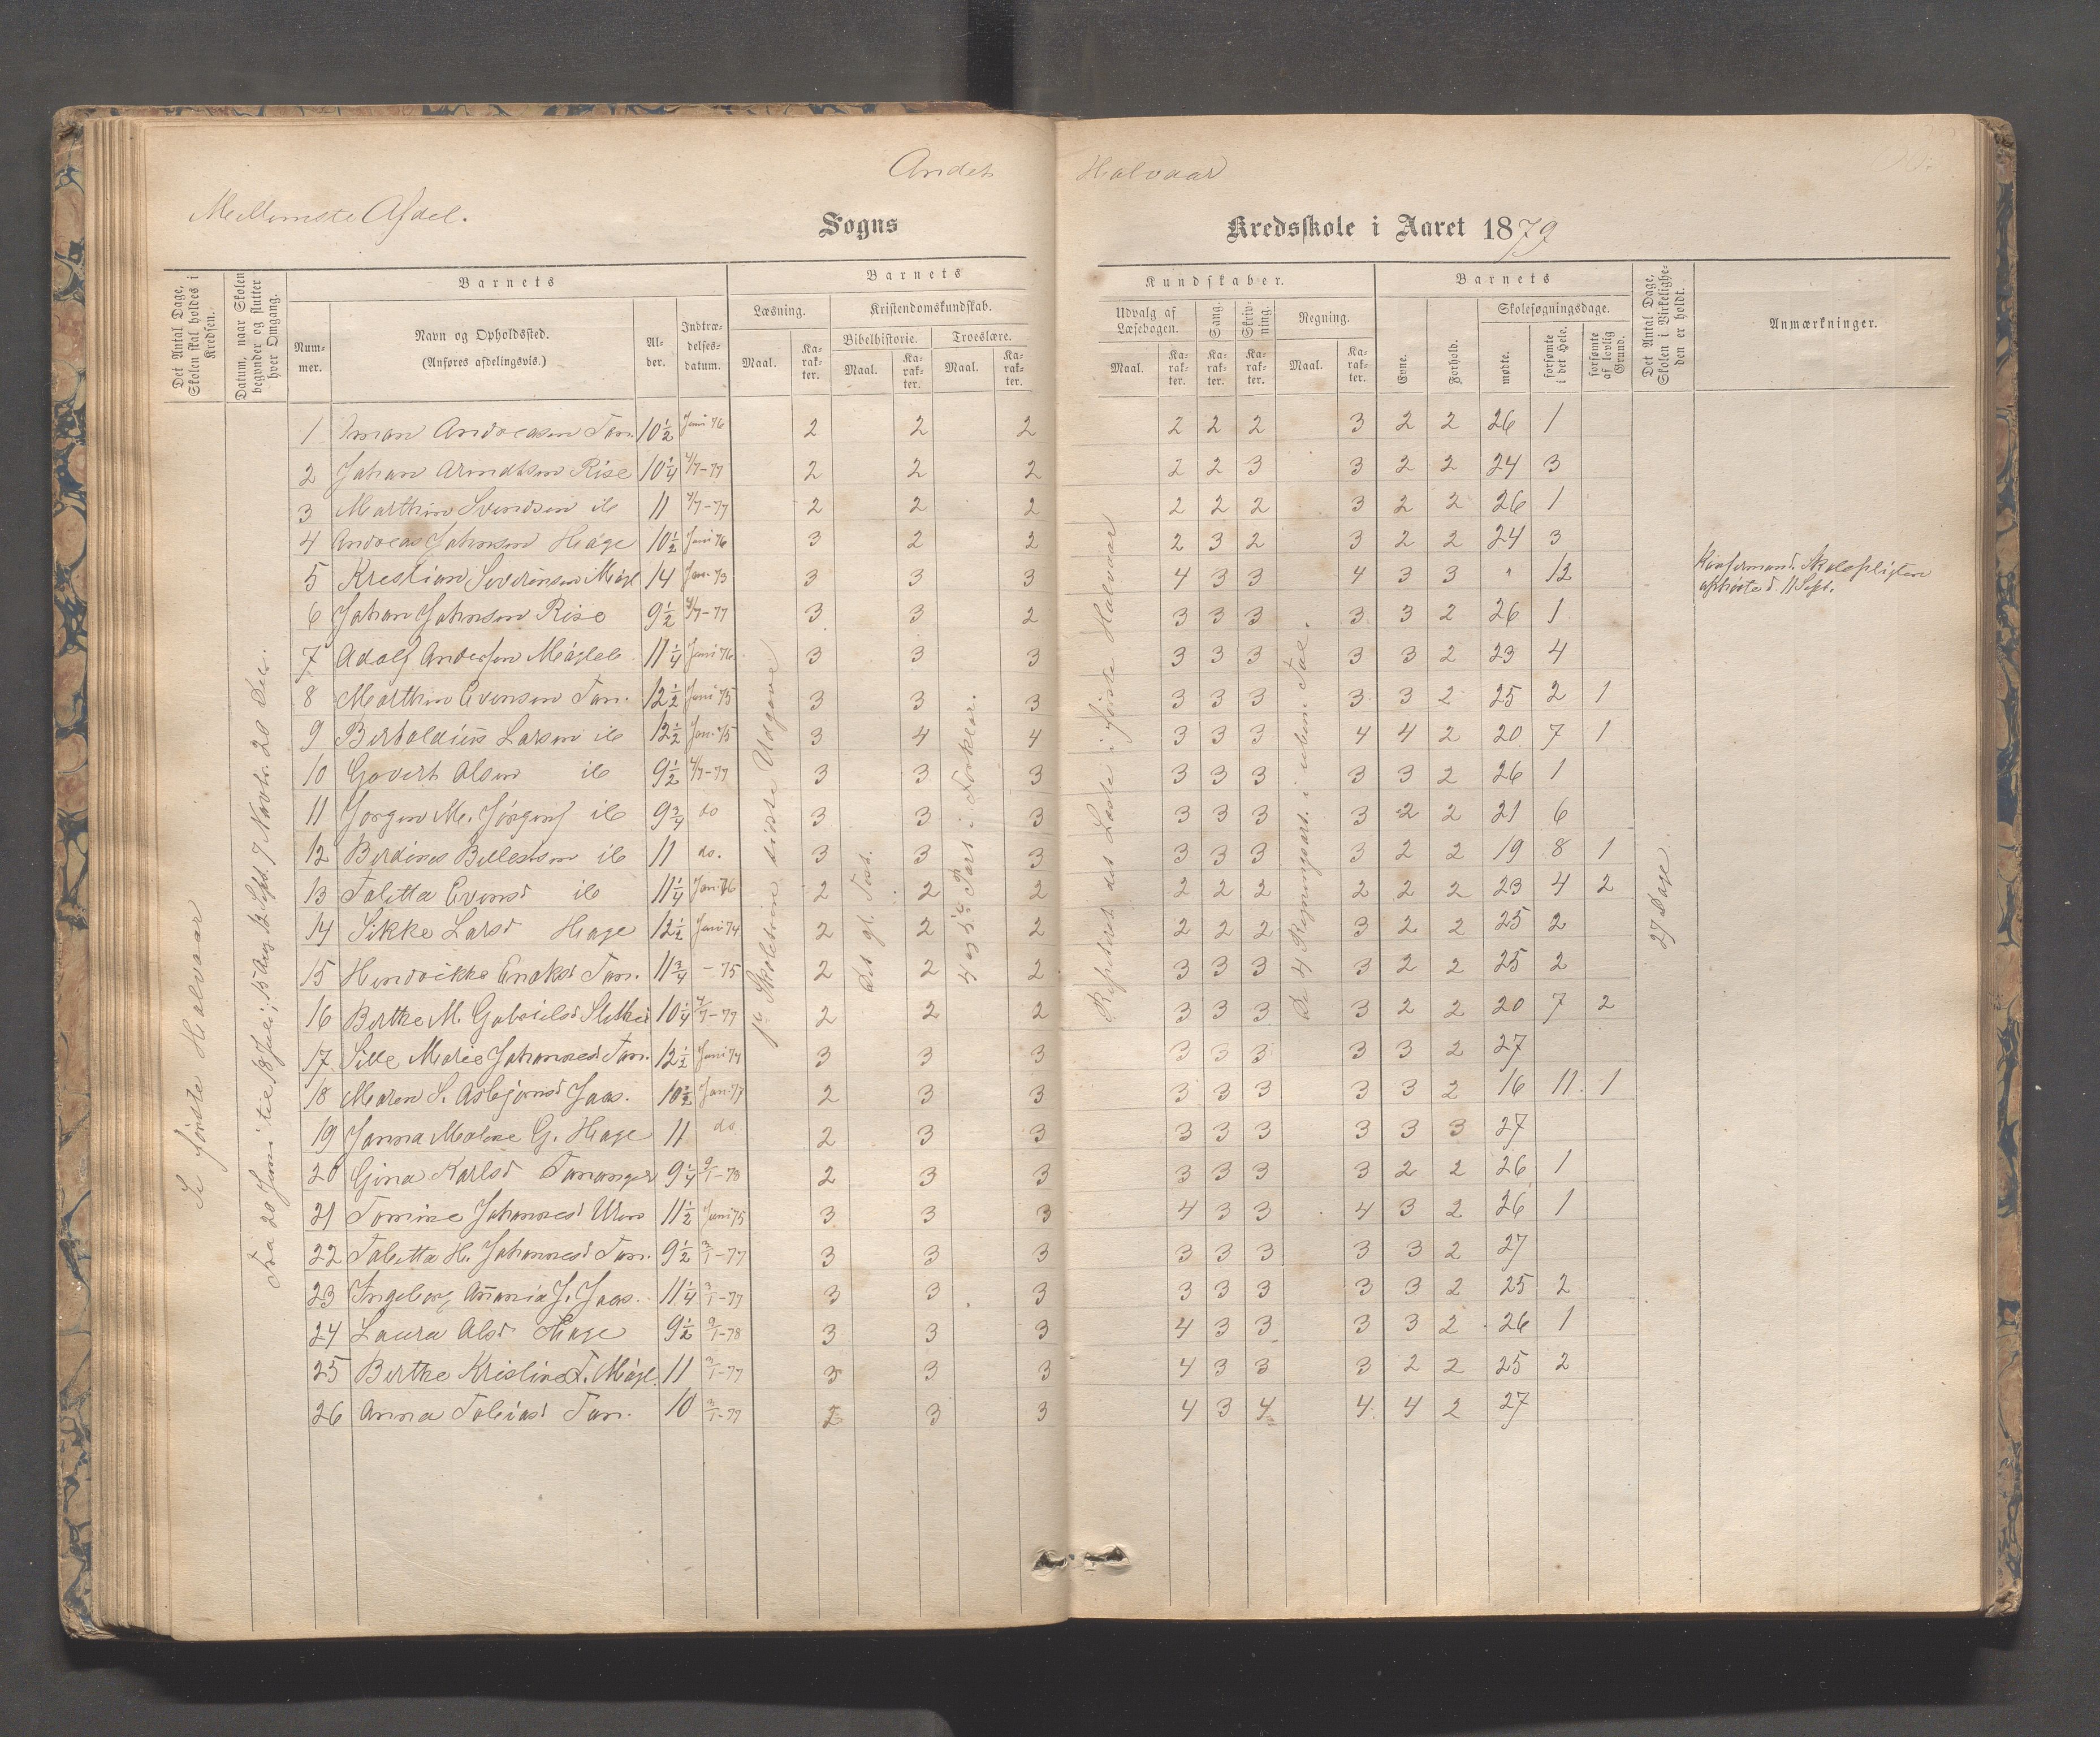 Andet Halvaar
Mellemste Afdel.
Sogns Kredsskole i Aaret 1879
Det Antal Dage, Skolen skal holdes i Kredsen.
Datum, naar Skolen begynder og slutter hver Omgang.
Barnets
Num-mer.
Navn og Opholdssted.
(Anføres afdelingsvis.)
Al-der.
Indtræ-delses-datum.
Barnets Kundskaber.
Læsning.
Maal. Ka-rak-ter.
Kristendomskundskab.
Bibelhistorie. Troeslære.
Maal. Ka-rak-ter. Maal. Ka-rak-ter.
Udvalg af Læsebogen.
Maal. Ka-rak-ter.
Sang. Ka-rak-ter.
Skriv-ning. Ka-rak-ter.
Regning.
Maal. Ka-rak-ter.
Barnets
Evne. Forhold.
Skolesøgningsdage.
mødte. forsømte i det Hele. forsømte af lovlig Grund.
Det Antal Dage, Skolen i Virkelighe-den er holdt.
Anmærkninger.
Se første Halvaar
Fra 20 Juni til 18 Juli; 15 Aug 12 Sept. 7 Novbr. 20 Dec.
Skolebrin sidste Udgave
Det gl. Test.
4 og 5 Part i Forklar.
Repeteret det Læste i første Halvaar
De 4 Regningsart. i uben. Tal.
27 Dage
1 Andreasen Tan. 10 1/2 Juni 76 2 2 2 2 2 2 3 2 2 26 1
2 Johan Arndtsen Rise 10 1/4 4/7-77 2 2 2 2 2 3 3 2 2 24 3
3 Marthin Svendsen ib 11 4/7-77 2 2 2 2 2 2 3 2 2 26 1
4 Andreas Johnsen Hage 10 1/2 Juni 76 3 2 2 2 3 2 3 2 2 24 3
5 Kristian Severinsen Mægl 14 Jan. 73 3 3 3 4 3 3 4 3 3 " 12
Konfirmand. Skolepligten
ophørte d. 11 Sept.
6 Johan Johnsen Rise 9 1/2 4/7-77 3 3 2 3 3 3 3 3 2 26 1
7 Adolf Andersen Mægleb 11 1/4 Juni 76 3 3 3 3 3 3 3 3 2 23 4
8 Marthin Evensen Tan. 12 1/2 Juni 75 3 3 3 3 3 3 3 3 2 25 2 1
9 Bertoldius Larsen ib 12 1/2 Jan. 75 3 4 4 3 3 3 4 4 2 20 7 1
10 Govert Olsen ib 9 1/2 4/7-77 3 3 3 3 3 3 3 3 2 26 1
11 Jørgen M. Jørgens ib 9 3/4 do 3 3 3 3 3 3 3 2 2 21 6
12 Berdines Bellesen ib 11 do. 3 3 3 3 3 3 3 2 2 19 8 1
13 Talitta Evensd ib 11 1/4 Jan. 76 2 2 2 2 2 2 2 2 2 23 4 2
14 Sikke Larsd Hage 12 1/2 Juni 74 2 2 2 2 2 2 3 2 2 25 2
15 Hendrikke Enoksd Tan. 11 3/4 - 75 2 2 2 3 3 3 3 2 2 25 2
16 Berthe M. Gabrielsd 10 1/4 4/7-77 2 2 2 3 3 3 3 2 2 20 7 2
17 Sille Marie Johannesd Tan. 12 1/2 Juni 74 3 3 3 3 3 3 3 3 2 27
18 Maren S. Asbjørnsd Jaas. 10 1/2 Jan. 77 2 3 3 3 3 3 3 3 2 16 11 1
19 Janna Malene G. Hage 11 do 2 3 3 3 3 3 3 3 3 27
20 Gina Karlsd Tananger 9 1/4 9/1-78 2 3 3 3 3 3 3 2 2 26 1
21 Tomine Johannesd 11 1/2 Juni 75 3 3 3 4 3 3 4 3 2 26 1
22 Talitta H. Johannesd Tan. 9 1/2 3/1-77 3 3 3 3 3 3 3 3 2 27
23 Ingeborg J. Jaas. 11 1/4 3/1-77 3 3 3 3 3 3 3 3 2 25 2
24 Laura Olsd Hage 9 1/2 9/1-78 3 3 3 4 3 3 3 3 2 26 1
25 Berthe Kristine T. Mægl. 11 3/1-77 3 3 3 4 3 3 3 2 2 25 2
26 Anna Tobiasd Tan. 10 3/1-77 2 3 3 4 3 4 4 4 2 27